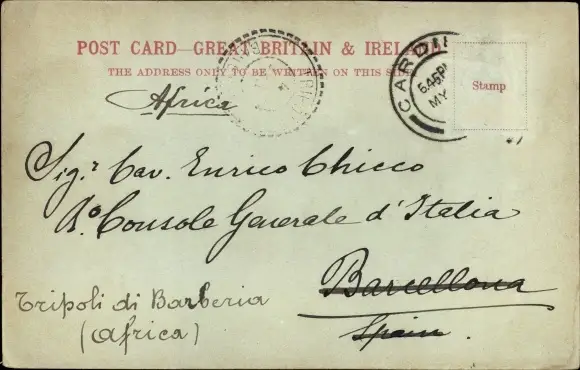 POST CARD—GREAT BRITAIN & IRELAND
THE ADDRESS ONLY TO BE WRITTEN ON THIS SIDE
Stamp
CARDI
5.45PM
MY
Africa
Sig.r Cav. Enrico Chicco
Ro Console Generale d'Italia
Barcellona
Spain.
Tripoli di Barberia
(Africa)